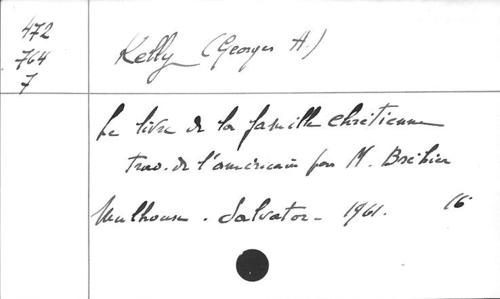 472
764
7
Kelly (Georges A.)
Le livre de la famille chrétienne
trad. de l'américain par M. Bréhier
Mulhouse. Salvator - 1961. 16